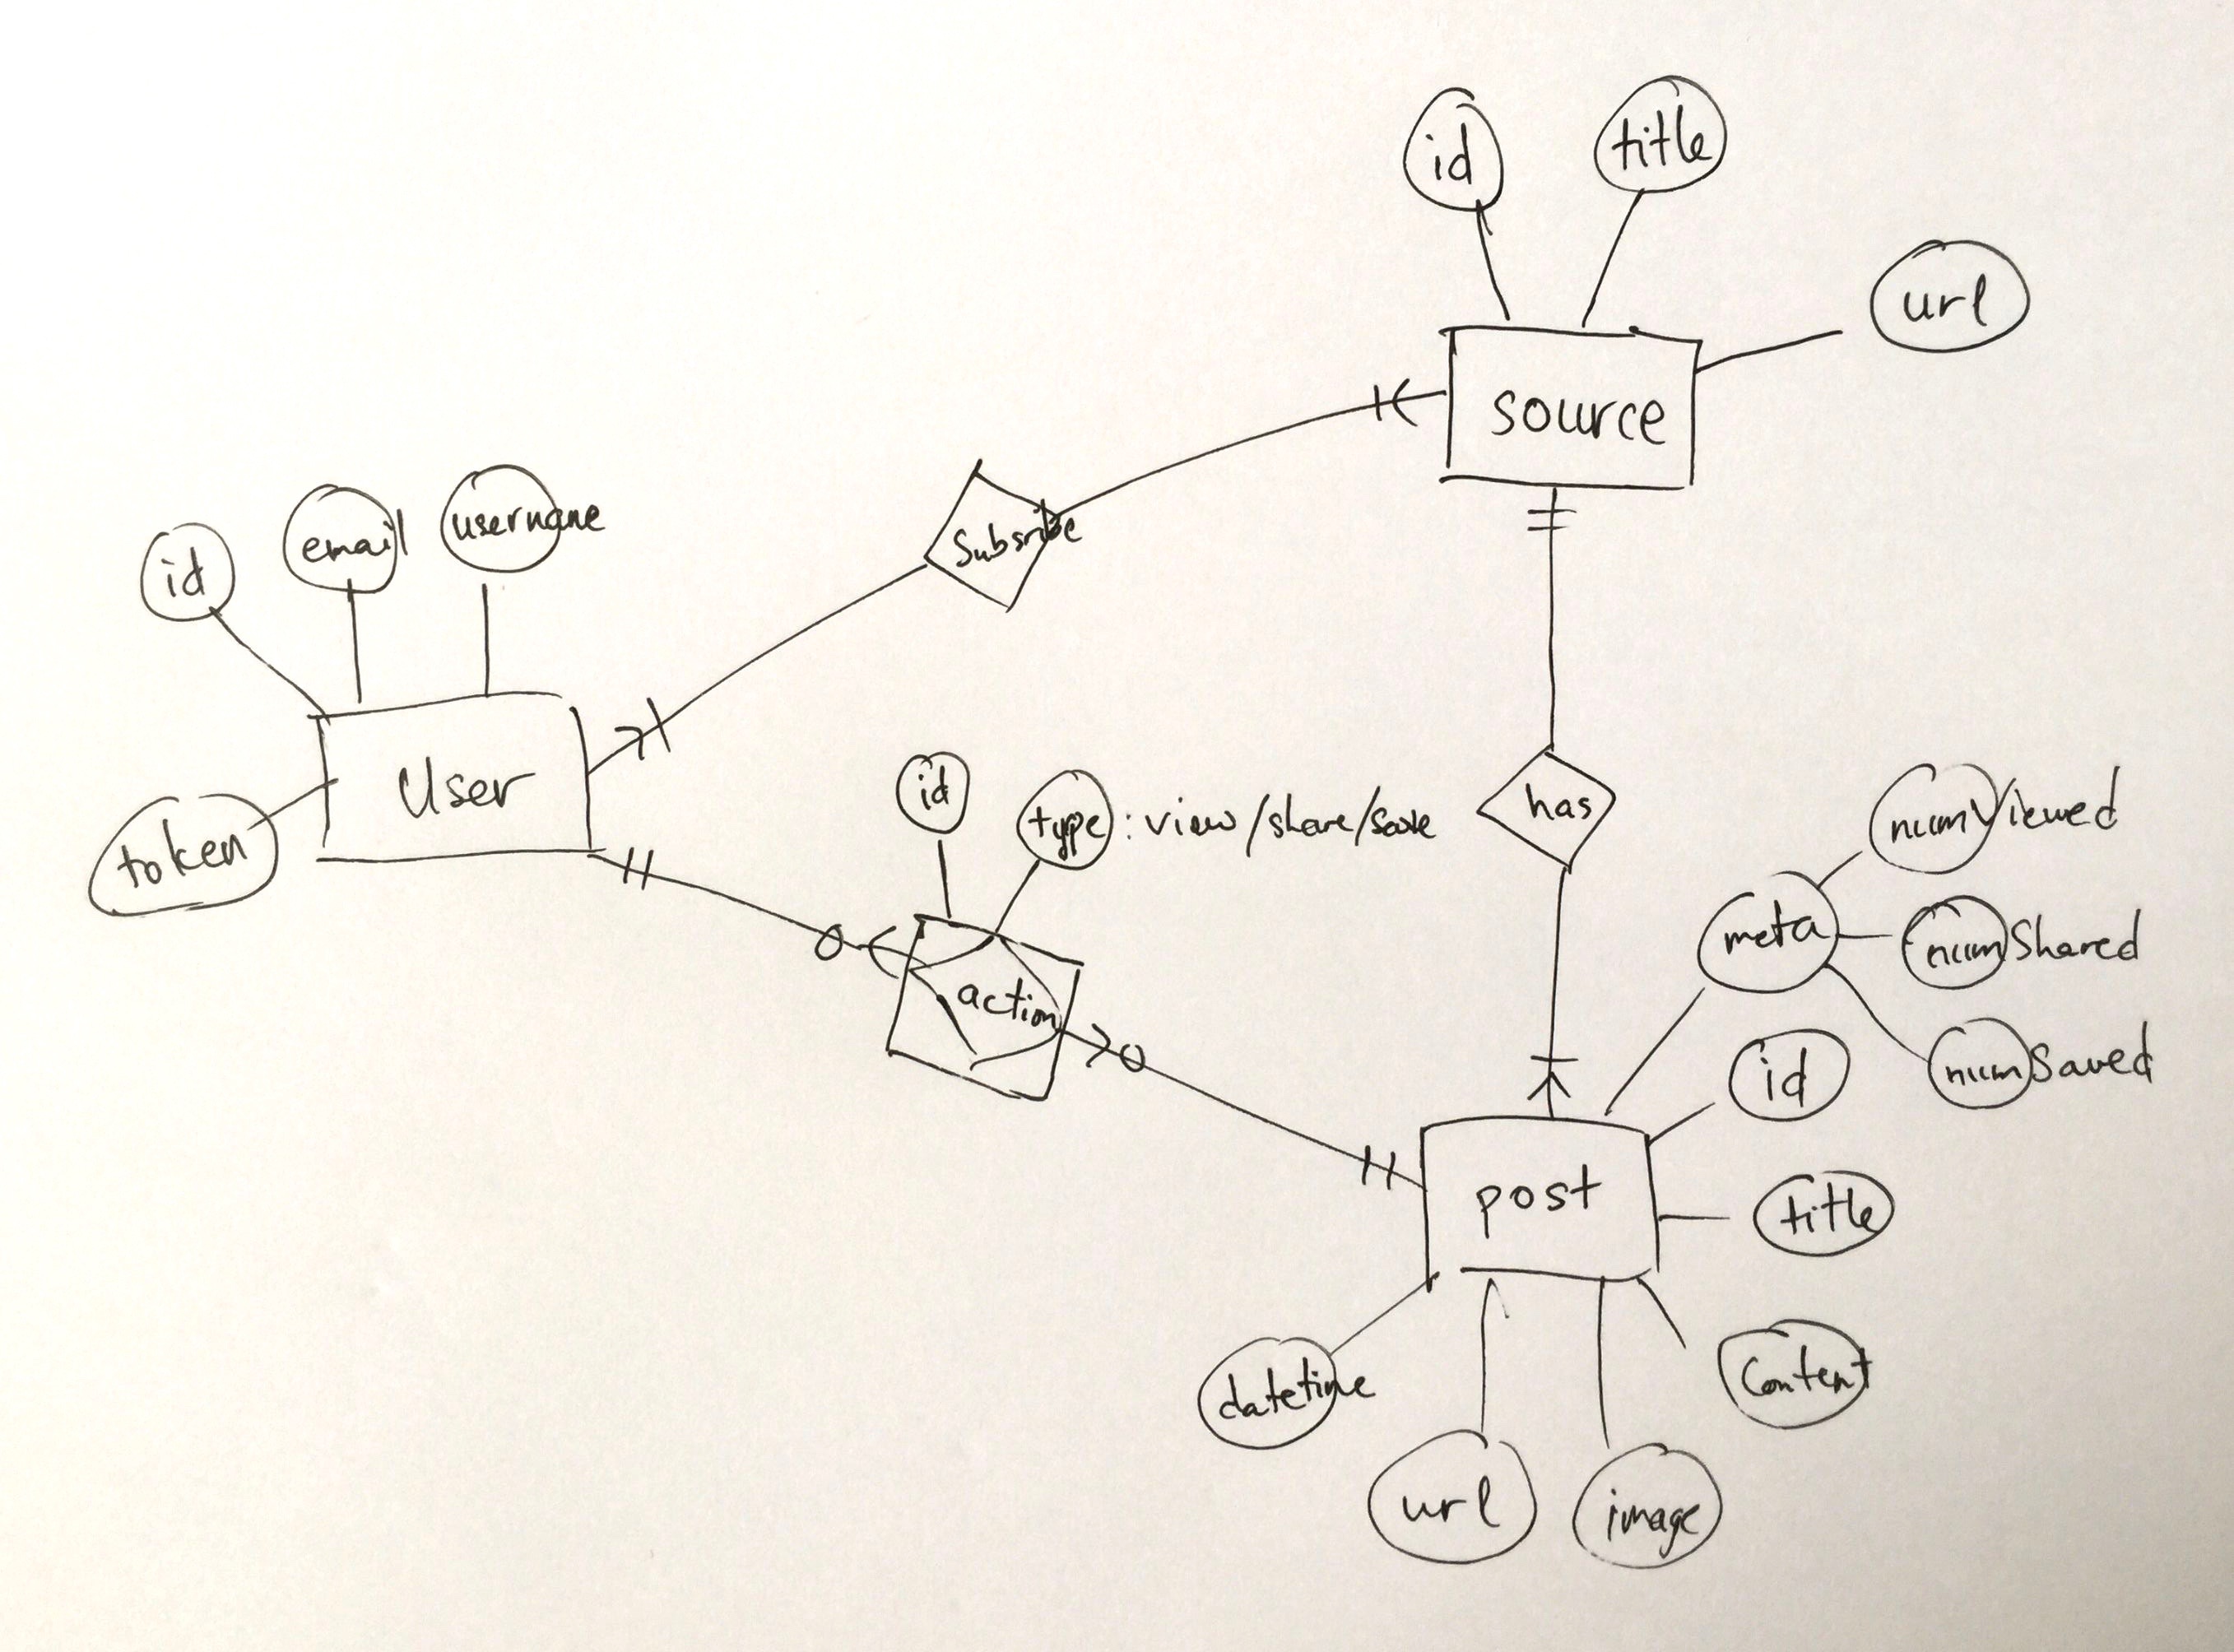 id
title
url
source
Subsribe
id
email
username
User
token
id
type : view/share/save
action
has
numViewed
meta
numShared
numSaved
id
post
title
content
datetime
url
image